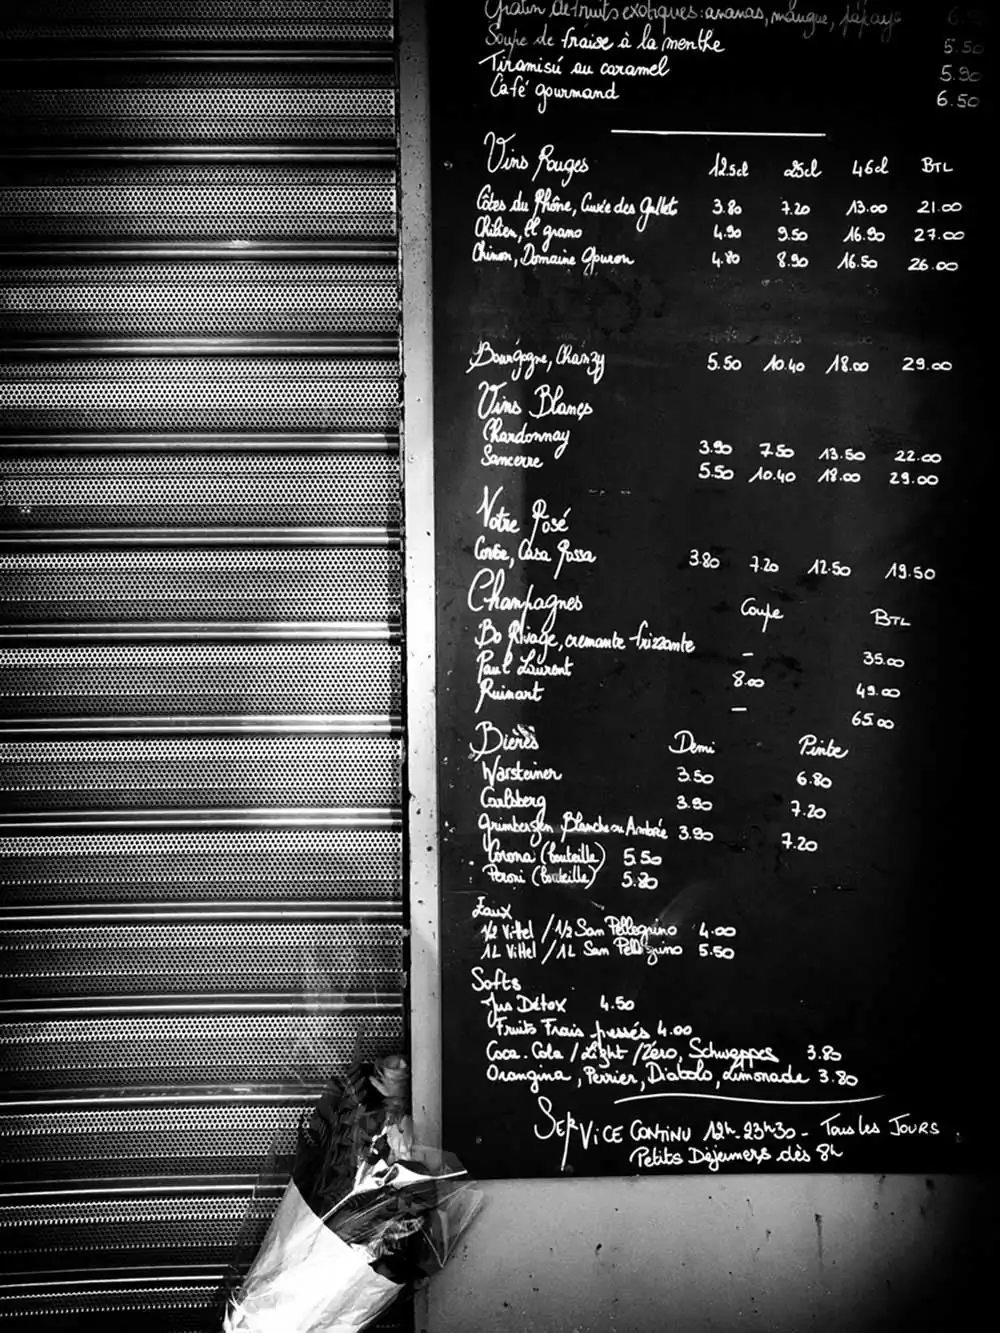 Gratin de fruits exotiques: ananas, mangue, papaye 6.50
Soupe de fraise à la menthe 5.50
Tiramisú au caramel 5.90
Café gourmand 6.50
Vins Rouges 12.5cl 25cl 46cl BTL
Côtes du Rhône, Cuvée des Gallets 3.80 7.20 13.00 21.00
Chilien, El grano 4.90 9.50 16.90 27.00
Chinon, Domaine Gouron 4.80 8.90 16.50 26.00
Bourgogne, Chanzy 5.50 10.40 18.00 29.00
Vins Blancs
Chardonnay 3.90 7.50 13.50 22.00
Sancerre 5.50 10.40 18.00 29.00
Notre Rosé
Corse, Casa Rossa 3.80 7.20 12.50 19.50
Champagnes Coupe BTL
Bo Rivage, cremante frizzante - 35.00
Paul Laurent 8.00 49.00
Ruinart - 65.00
Bières Demi Pinte
Warsteiner 3.50 6.80
Carlsberg 3.90 7.20
Grimbergen Blanche ou Ambrée 3.90 7.20
Corona (bouteille) 5.50
Peroni (bouteille) 5.80
Eaux
1/2 Vittel / 1/2 San Pellegrino 4.00
1L Vittel / 1L San Pellegrino 5.50
Softs
Jus Détox 4.50
Fruits Frais pressés 4.00
Coca-Cola / Light / Zéro, Schweppes 3.80
Orangina, Perrier, Diabolo, Limonade 3.80
SERViCE CONTiNU 12h-23h30 - Tous les JOURS.
Petits Déjeuners dès 8h